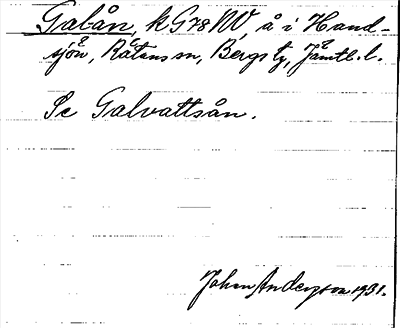 Galån, k G78 NV, å i Hand-
sjön, Rätans sn, Bergs tg, Jämtl. l.
Se Galvattsån.
Johan Anderson 1931.